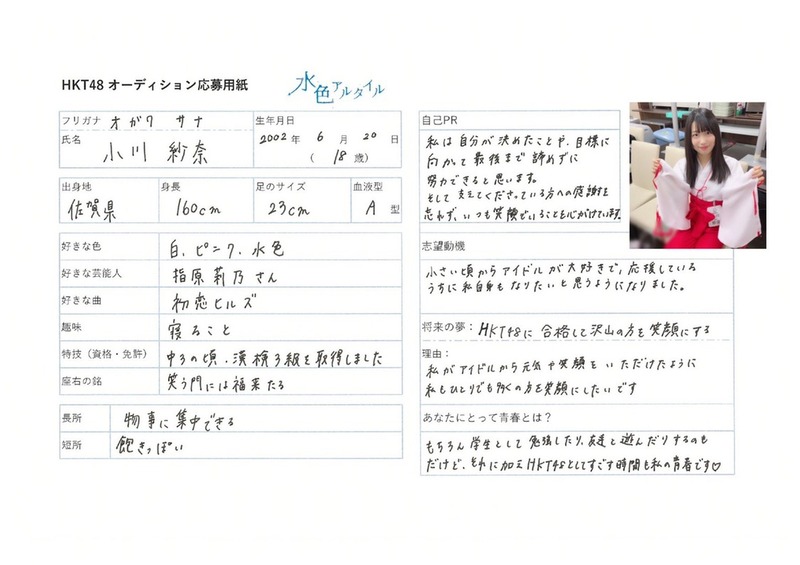 HKT48 オーディション応募用紙
水色アルタイル
フリガナ オガワ サナ
氏名 小川 紗奈
生年月日
2002 年 6 月 20 日
( 18 歳)
出身地 佐賀県
身長 160cm
足のサイズ 23cm
血液型 A 型
好きな色 白、ピンク、水色
好きな芸能人 指原莉乃さん
好きな曲 初恋ヒルズ
趣味 寝ること
特技（資格・免許） 中3の頃、漢検3級を取得しました
座右の銘 笑う門には福来たる
長所 物事に集中できる
短所 飽きっぽい
自己PR
私は自分が決めたことや、目標に
向かって最後まで諦めずに
努力できると思います。
そして支えてくださっている方への感謝を
忘れず、いつも笑顔でいることも心がけています。
志望動機
小さい頃からアイドルが大好きで、応援している
うちに私自身もなりたいと思うようになりました。
将来の夢：HKT48に合格して沢山の方を笑顔にする
理由：
私がアイドルから元気や笑顔をいただけたように
私もひとりでも多くの方を笑顔にしたいです
あなたにとって青春とは？
もちろん学生として勉強したり、友達と遊んだりするのも
だけど、それに加えHKT48としてすごす時間も私の青春です♡